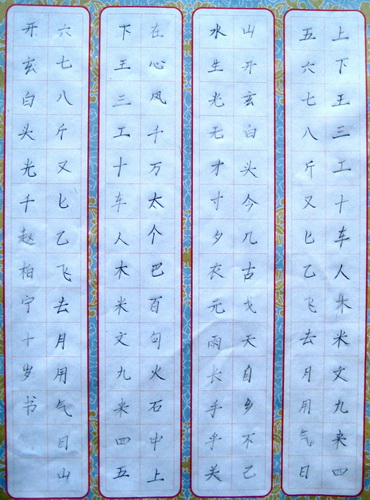 上下王三工十车人朱米文九来四
五六七八斤又匕乙飞去月用气日
山开玄白头今几古戈天自乡不己
水生光无才寸夕衣元雨长手乎关
在心风千万太个巴百句火石中上
下王三工十车人木米文九来四五
六七八斤又匕乙飞去月用气日山
开玄白头光千赵柏宁十岁书